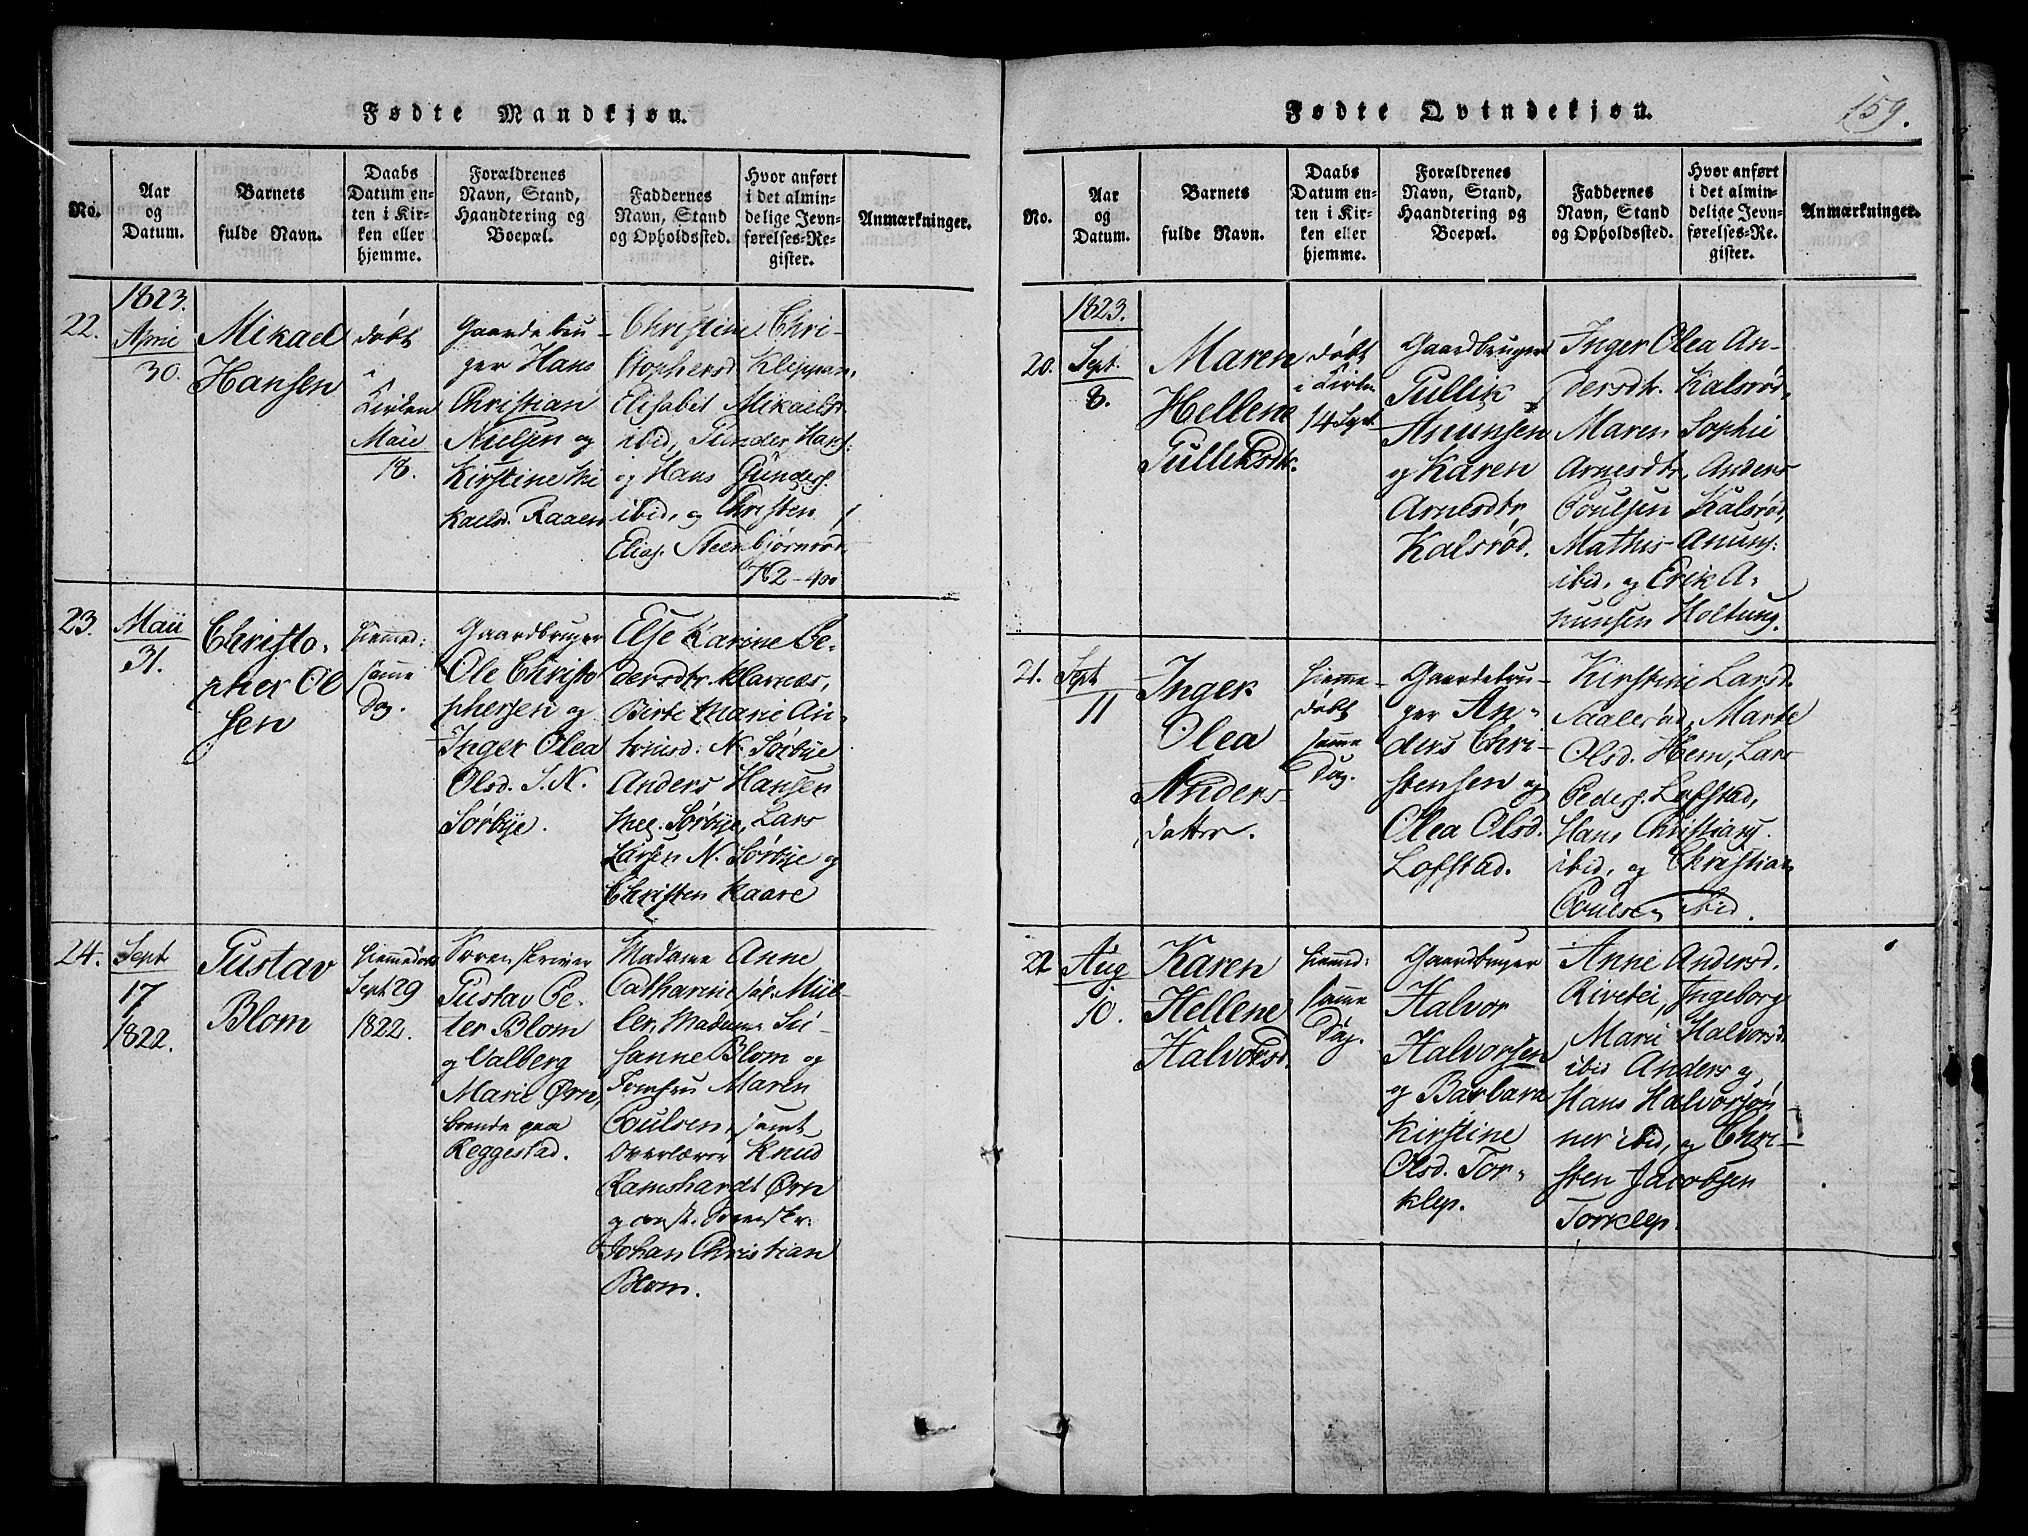 Fødte Mandkjøn.
No.
Aar
og
Datum.
Barnets
fulde Navn.
Daabs
Datum en-
ten i Kir-
ken eller
hjemme.
Forældrenes
Navn, Stand,
Haandtering og
Boepæl.
Faddernes
Navn, Stand
og Opholdssted.
Hvor anført
i det almin-
delige Jevn-
førelses-Re-
gister.
Anmærkninger.
22.
1823.
April
30.
Mikael
Hansen
døbt
i
Kirken
Maii
18.
Gaardebru-
ger Hans
Christian
Nielsen og
Kirstine Mi
kaelsd. Raaen
Christine Chri-
stophersd Kleppan,
Elisabet Mikaelsd.
ibid, Gunder Hans:
og Hans Gunders.
ibid, og Christen
Elias. Steenbjørnrød.
762-400
23.
Maii
31.
Christo-
pher Ol
sen
hiemmed:
samme
Dag.
Gaardbruger
Ole Christo
phersen og
Inger Olea
Olsd. S. N.
Sørbye.
Else Karine Pe-
dersdtr. Klarnæs,
Birte Marie An-
tonisd: N. Sørbye
Anders Hansen
Mel. Sørbye, Lars
Larsen N. Sørbye og
Christen Kaare
24.
Sept
17
1822.
Gustav
Blom
hiemmedøbt
Sept 29
1822.
Sorenskriver
Gustav Pe-
ter Blom
og Valberg
Marie Ørn,
boende paa
Reggestad.
Madame Anne
Catharine sal. Mül-
ler, Madame Su-
sanne Blom og
Jomfru Maren
Poulsen, samt
Overlærer Knud
Ramshardt Ørn
og const. Sorenskr:
Johan Christian
Blom.
Fødte Qvindekjøn.
159.
No.
Aar
og
Datum.
Barnets
fulde Navn.
Daabs
Datum en-
ten i Kir-
ken eller
hjemme.
Forældrenes
Navn, Stand,
Haandtering og
Boepæl.
Faddernes
Navn, Stand
og Opholdssted.
Hvor anført
i det almin-
delige Jevn-
førelses-Re-
gister.
Anmærkninger.
20.
1823.
Sept.
8.
Maren
Hellene
Gulliksdtr.
døbt
i Kirken
14 Sept
Gaardbruger
Gullik
Anunsen
og Karen
Arnesdtr
Kalsrød.
Inger Olea An-
dersdtr. Kalsrød,
Maren Sophie
Arnesdtr, Anders
Poulsen Kalsrød,
Mathis Anuns:
ibid, og Erik A-
nunsen Holtung.
21.
Sept
11
Inger
Olea
Anders-
datter.
hiemme-
døbt
samme
Dag.
Gaardebru-
ger An-
ders Chri-
stensen og
Olea Olsd.
Lofstad.
Kirstine Larsd.
Saalesrød, Marte
Olsd. Hem, Lars
Peders. Lofstad,
Hans Christians.
ibid, og Christian
Poulsen ibid.
22
Aug
10.
Karen
Hellene
Halvorsd.
hiemmd:
samme
Dag.
Gaardbruger
Halvor
Halvorsen
og Barbara
Kirstine
Olsd. Tor-
klep.
Anne Andersd.
Rivetei, Ingeborg
Marie Halvorsd.
ibid Anders og
Hans Halvorsøn
ner ibid, og Chri-
sten Jacobsen
Torklep.